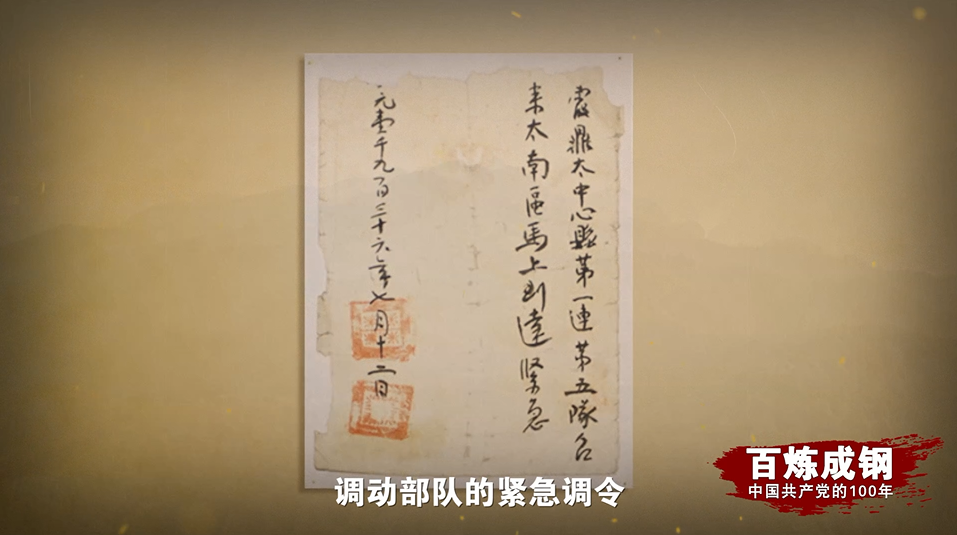 霞鼎太中心縣第一連第五隊
来太南區馬上到達緊急
元壹千九百三十六年七月十二日
调动部队的紧急调令
百炼成钢
中国共产党的100年